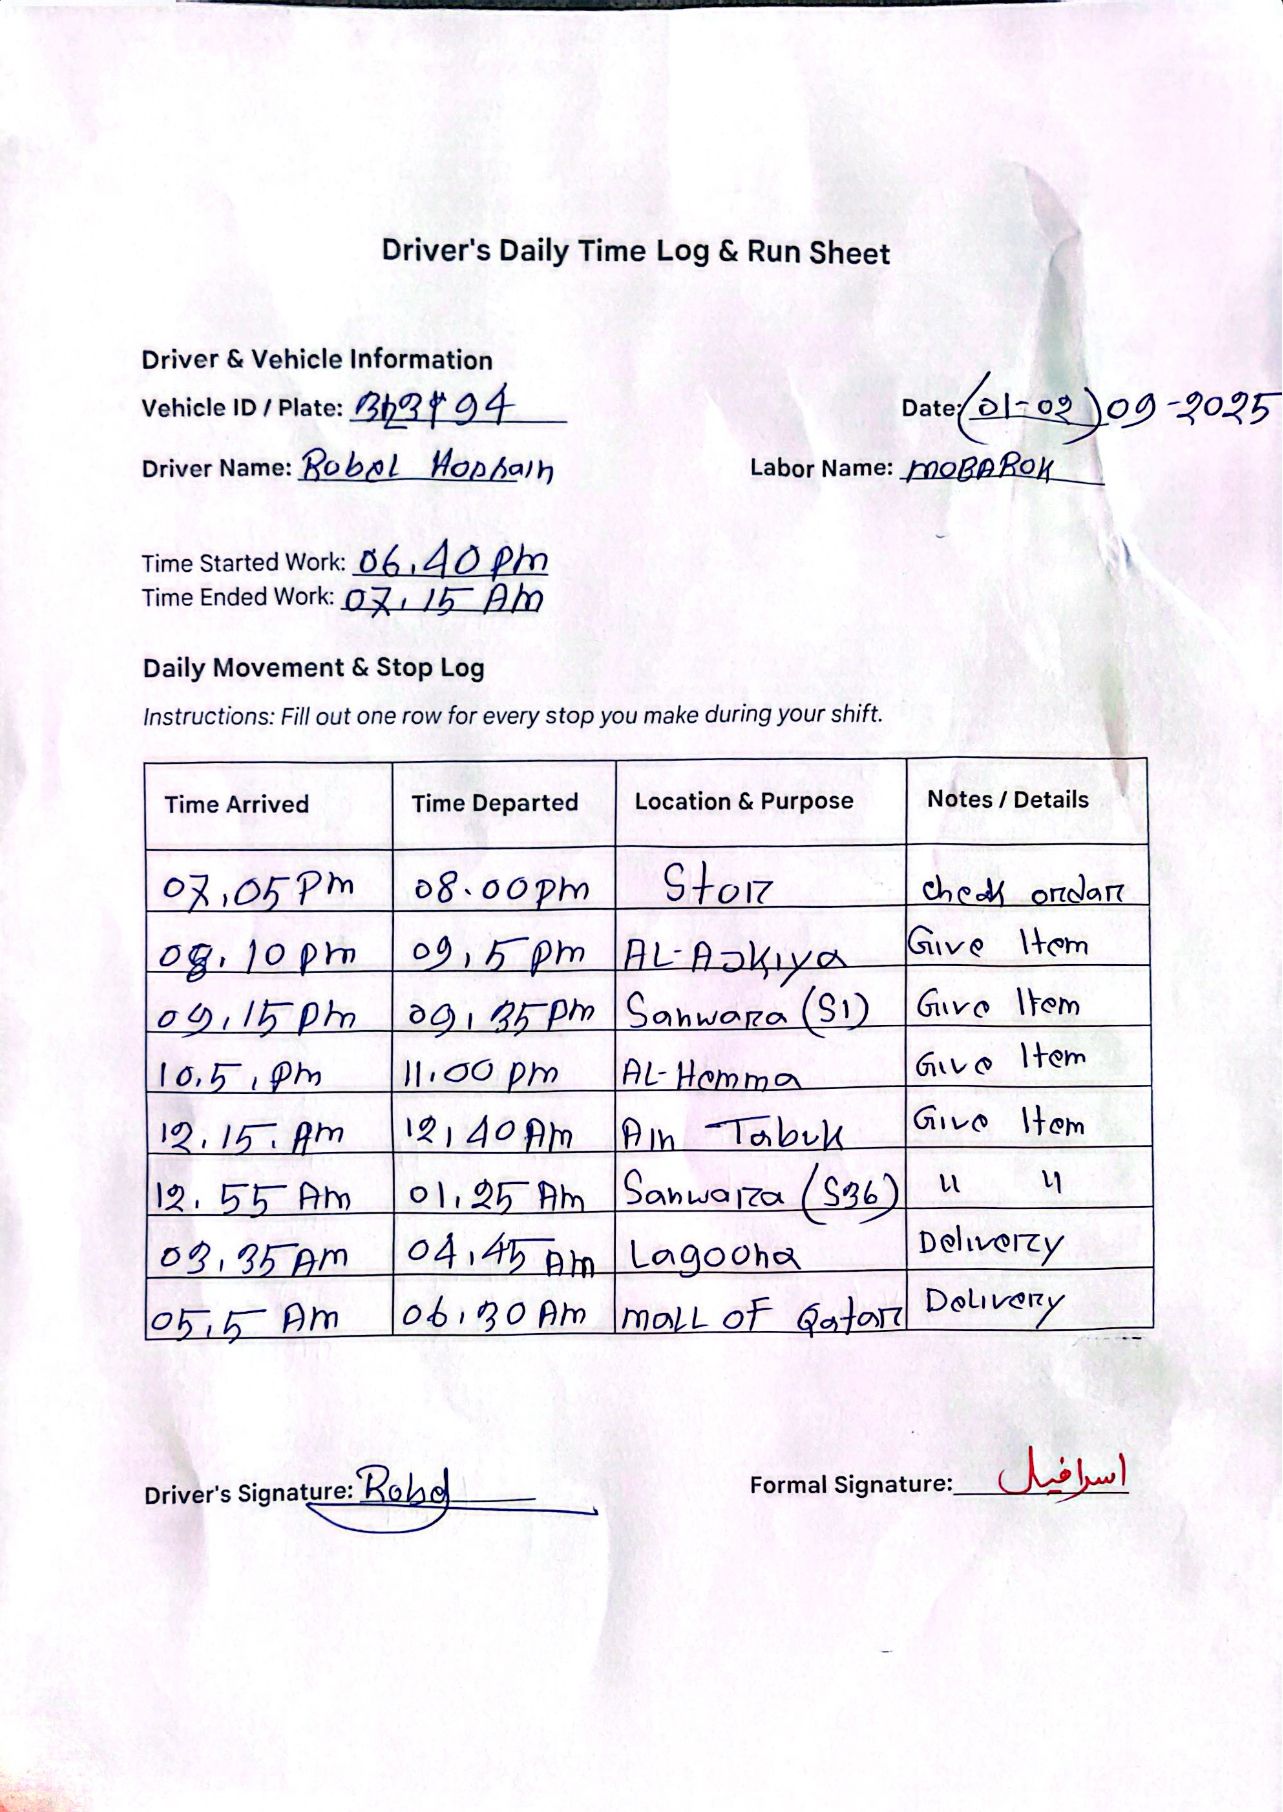 Driver's Daily Time Log & Run Sheet
Driver & Vehicle Information
Vehicle ID / Plate:
Date: (01-02) 09-2025
Driver Name: Robel Hossain
Labor Name: MOBAROK
Time Started Work: 06.40 pm
Time Ended Work: 07.15 Am
Daily Movement & Stop Log
Instructions: Fill out one row for every stop you make during your shift.
Time Arrived Time Departed Location & Purpose Notes / Details
07.05 Pm 08.00 pm Stor check ordar
08.10 pm 09.5 pm AL-Azkiya Give Item
09.15 pm 09.35 pm Sanwara (S1) Give Item
10.5 . pm 11.00 pm AL-Hemma Give Item
12.15. Am 12.40 Am Ain Tabuk Give Item
12.55 Am 01.25 Am Sanwara (S36) " "
03.35 AM 04.45 Am Lagoona Delivery
05.5 Am 06.30 Am mall OF Qatar Delivery
Driver's Signature: Robel
Formal Signature: اسرافيل